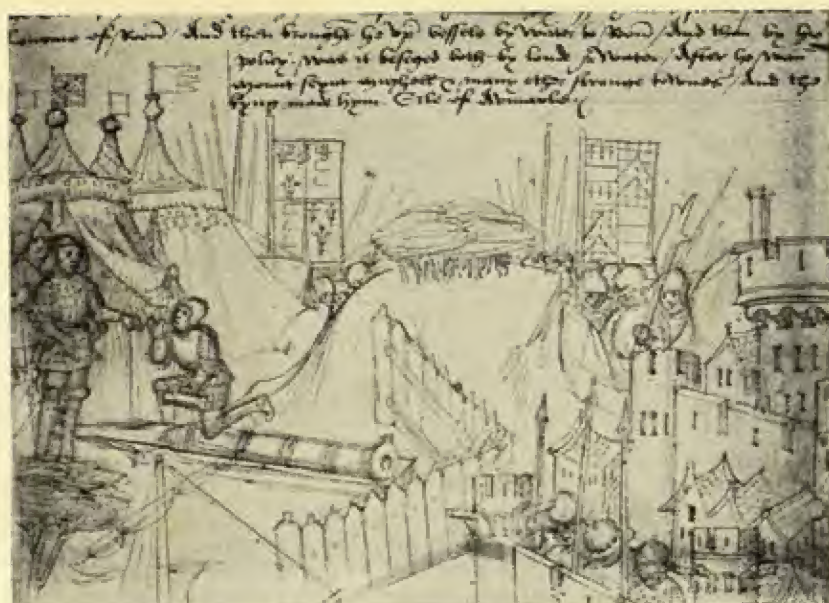 of Roon / And then brought he vp vessels by water to Roon / And then by his
policy was it beseged both by londe & water / After he wan
mount seynt mighell & many other strange townes / And the
kyng made hym Erle of Aumarle